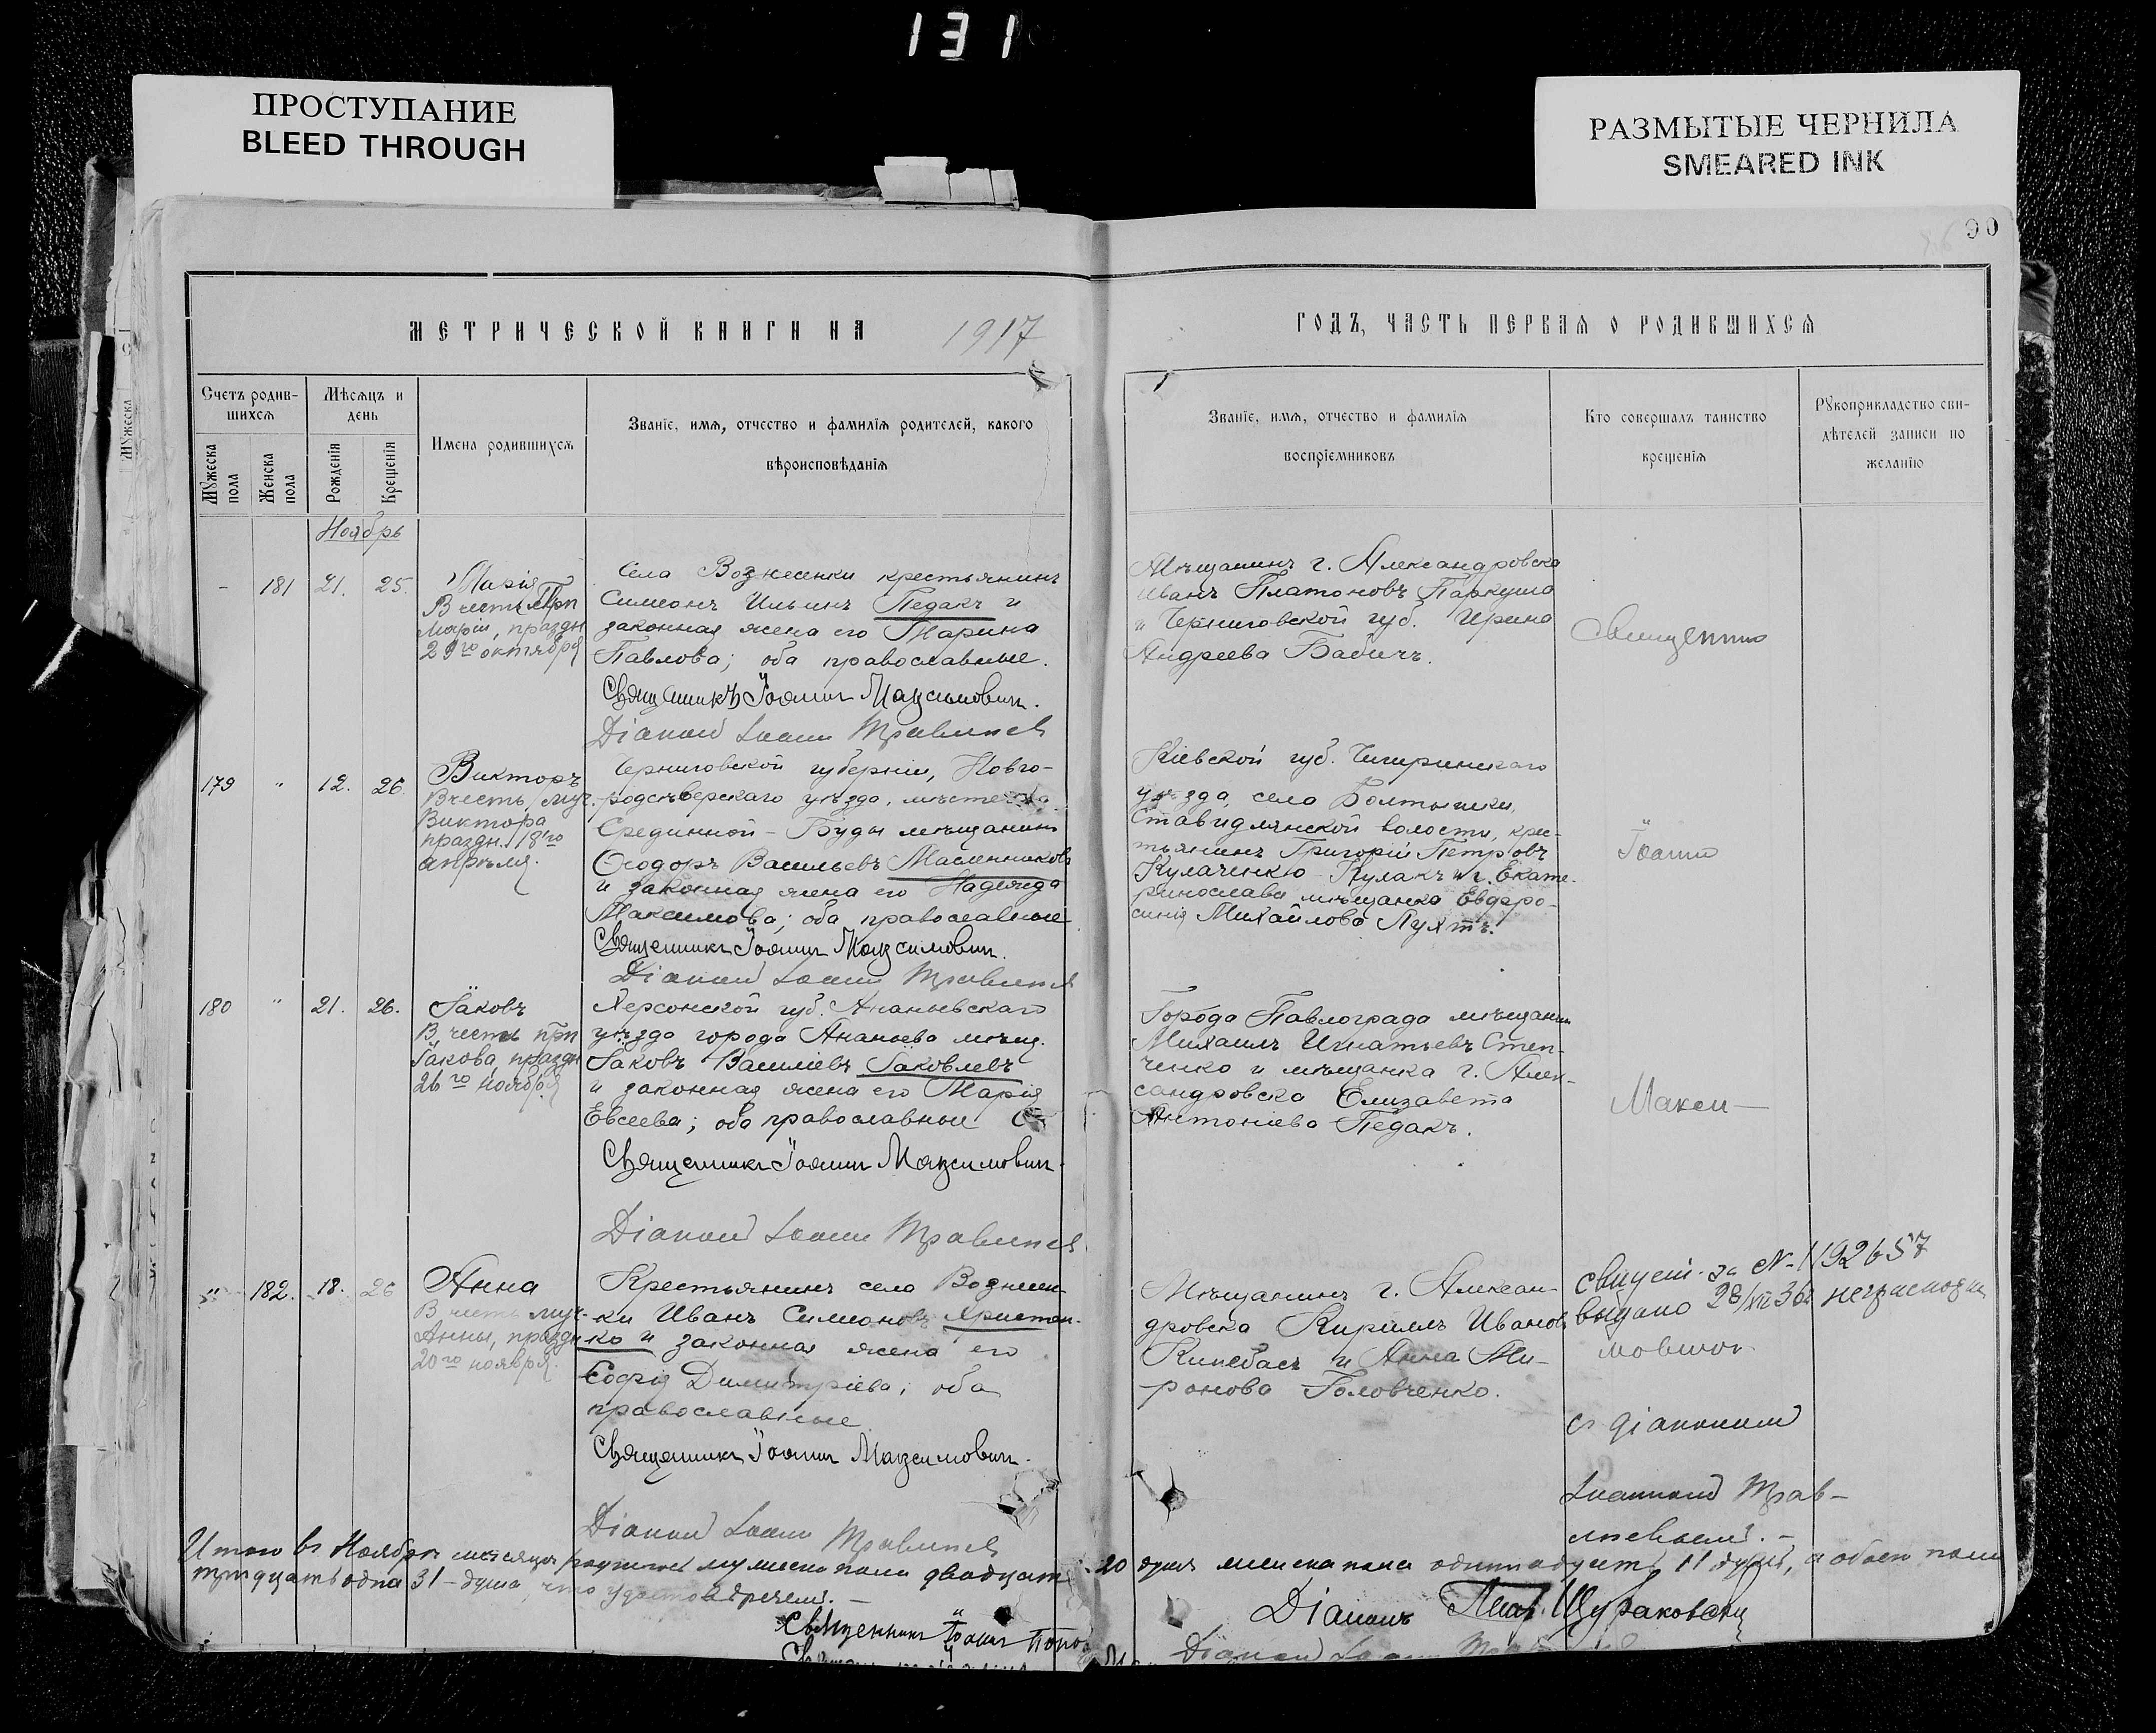 131
ПРОСТУПАНИЕ
BLEED THROUGH
РАЗМЫТЫЕ ЧЕРНИЛА
SMEARED INK
90
МЕТРИЧЕСКОЙ КНИГИ НА 1917
ГОДЪ, ЧАСТЬ ПЕРВАЯ О РОДИВШИХСЯ
Счетъ родив-
шихся
Мужеска пола
Женска пола
Мѣсяцъ и
день
Рожденія
Крещенія
Имена родившихся
Званіе, имя, отчество и фамилія родителей, какого
вѣроисповѣданія
Званіе, имя, отчество и фамилія
воспріемниковъ
Кто совершалъ таинство
крещенія
Рукоприкладство сви-
дѣтелей записи по
желанію
Ноябрь
- 181 21. 25.
Марія
В честь Прп
Маріи, праздн
29го октября
Села Вознесенки крестьянинъ
Симеонъ Ильинъ Педакъ и
законная жена его Марина
Павлова; оба православные.
Священникъ Іоаннъ Максимовичъ.
Діаконъ Іоаннъ
Мѣщанинъ г. Александровска
Иванъ Платоновъ Паркуша
и Черниговской губ. Ирина
Андреева Бабичъ.
Священникъ
179 " 12. 26.
Викторъ
В честь муч.
Виктора
праздн. 18го
апрѣля.
Черниговской губерніи, Новго-
родсѣверскаго уѣзда, мѣстечка
Срединной-Буды мѣщанинъ
Ѳеодоръ Васильевъ Масленниковъ
и законная жена его Надежда
Максимова; оба православные
Священникъ Іоаннъ Максимовичъ.
Діаконъ Іоаннъ
Кіевской губ. Чигиринскаго
уѣзда, села Болтышки,
Ставидлянской волости, крес-
тьянинъ Григорій Петровъ
Кулаченко Кулакъ и г. Екате-
ринослава мѣщанка Евфро-
синія Михайлова Лухтъ.
Іоаннъ
180 " 21. 26.
Іаковъ
В честь прп
Іакова, праздн
26го ноября
Херсонской губ. Ананьевскаго
уѣзда города Ананьева мѣщ.
Іаковъ Василіевъ Іаковлевъ
и законная жена его Марія
Евсеева; оба православные
Священникъ Іоаннъ Максимовичъ.
Діаконъ Іоаннъ
Города Павлограда мѣщанинъ
Михаилъ Игнатьевъ Степ-
ченко и мѣщанка г. Алек-
сандровска Елизавета
Антоніева Педакъ.
Макси-
" 182. 18. 26
Анна
В честь муч.
Анны, праздн
20го ноября.
Крестьянинъ села Вознесен-
ки Иванъ Симеоновъ Христен-
ко и законная жена его
Софія Димитріева; оба
православные
Священникъ Іоаннъ Максимовичъ.
Діаконъ Іоаннъ
Мѣщанинъ г. Алексан-
дровска Кириллъ Ивановъ
Кипебасъ и Анна Ми-
ронова Головченко.
свидет. за N-1192657
выдано 28/XII 36г
мовичъ
съ діакономъ
Іоанномъ
Итого въ Ноябрѣ мѣсяцѣ родилось мужеска пола двадцать 20 душъ женска пола одиннадцать 11 душъ, а обоего пола
тридцать одна 31-душа, что удостовѣряемъ.-
Священникъ Іоаннъ
Діаконъ
Діаконъ